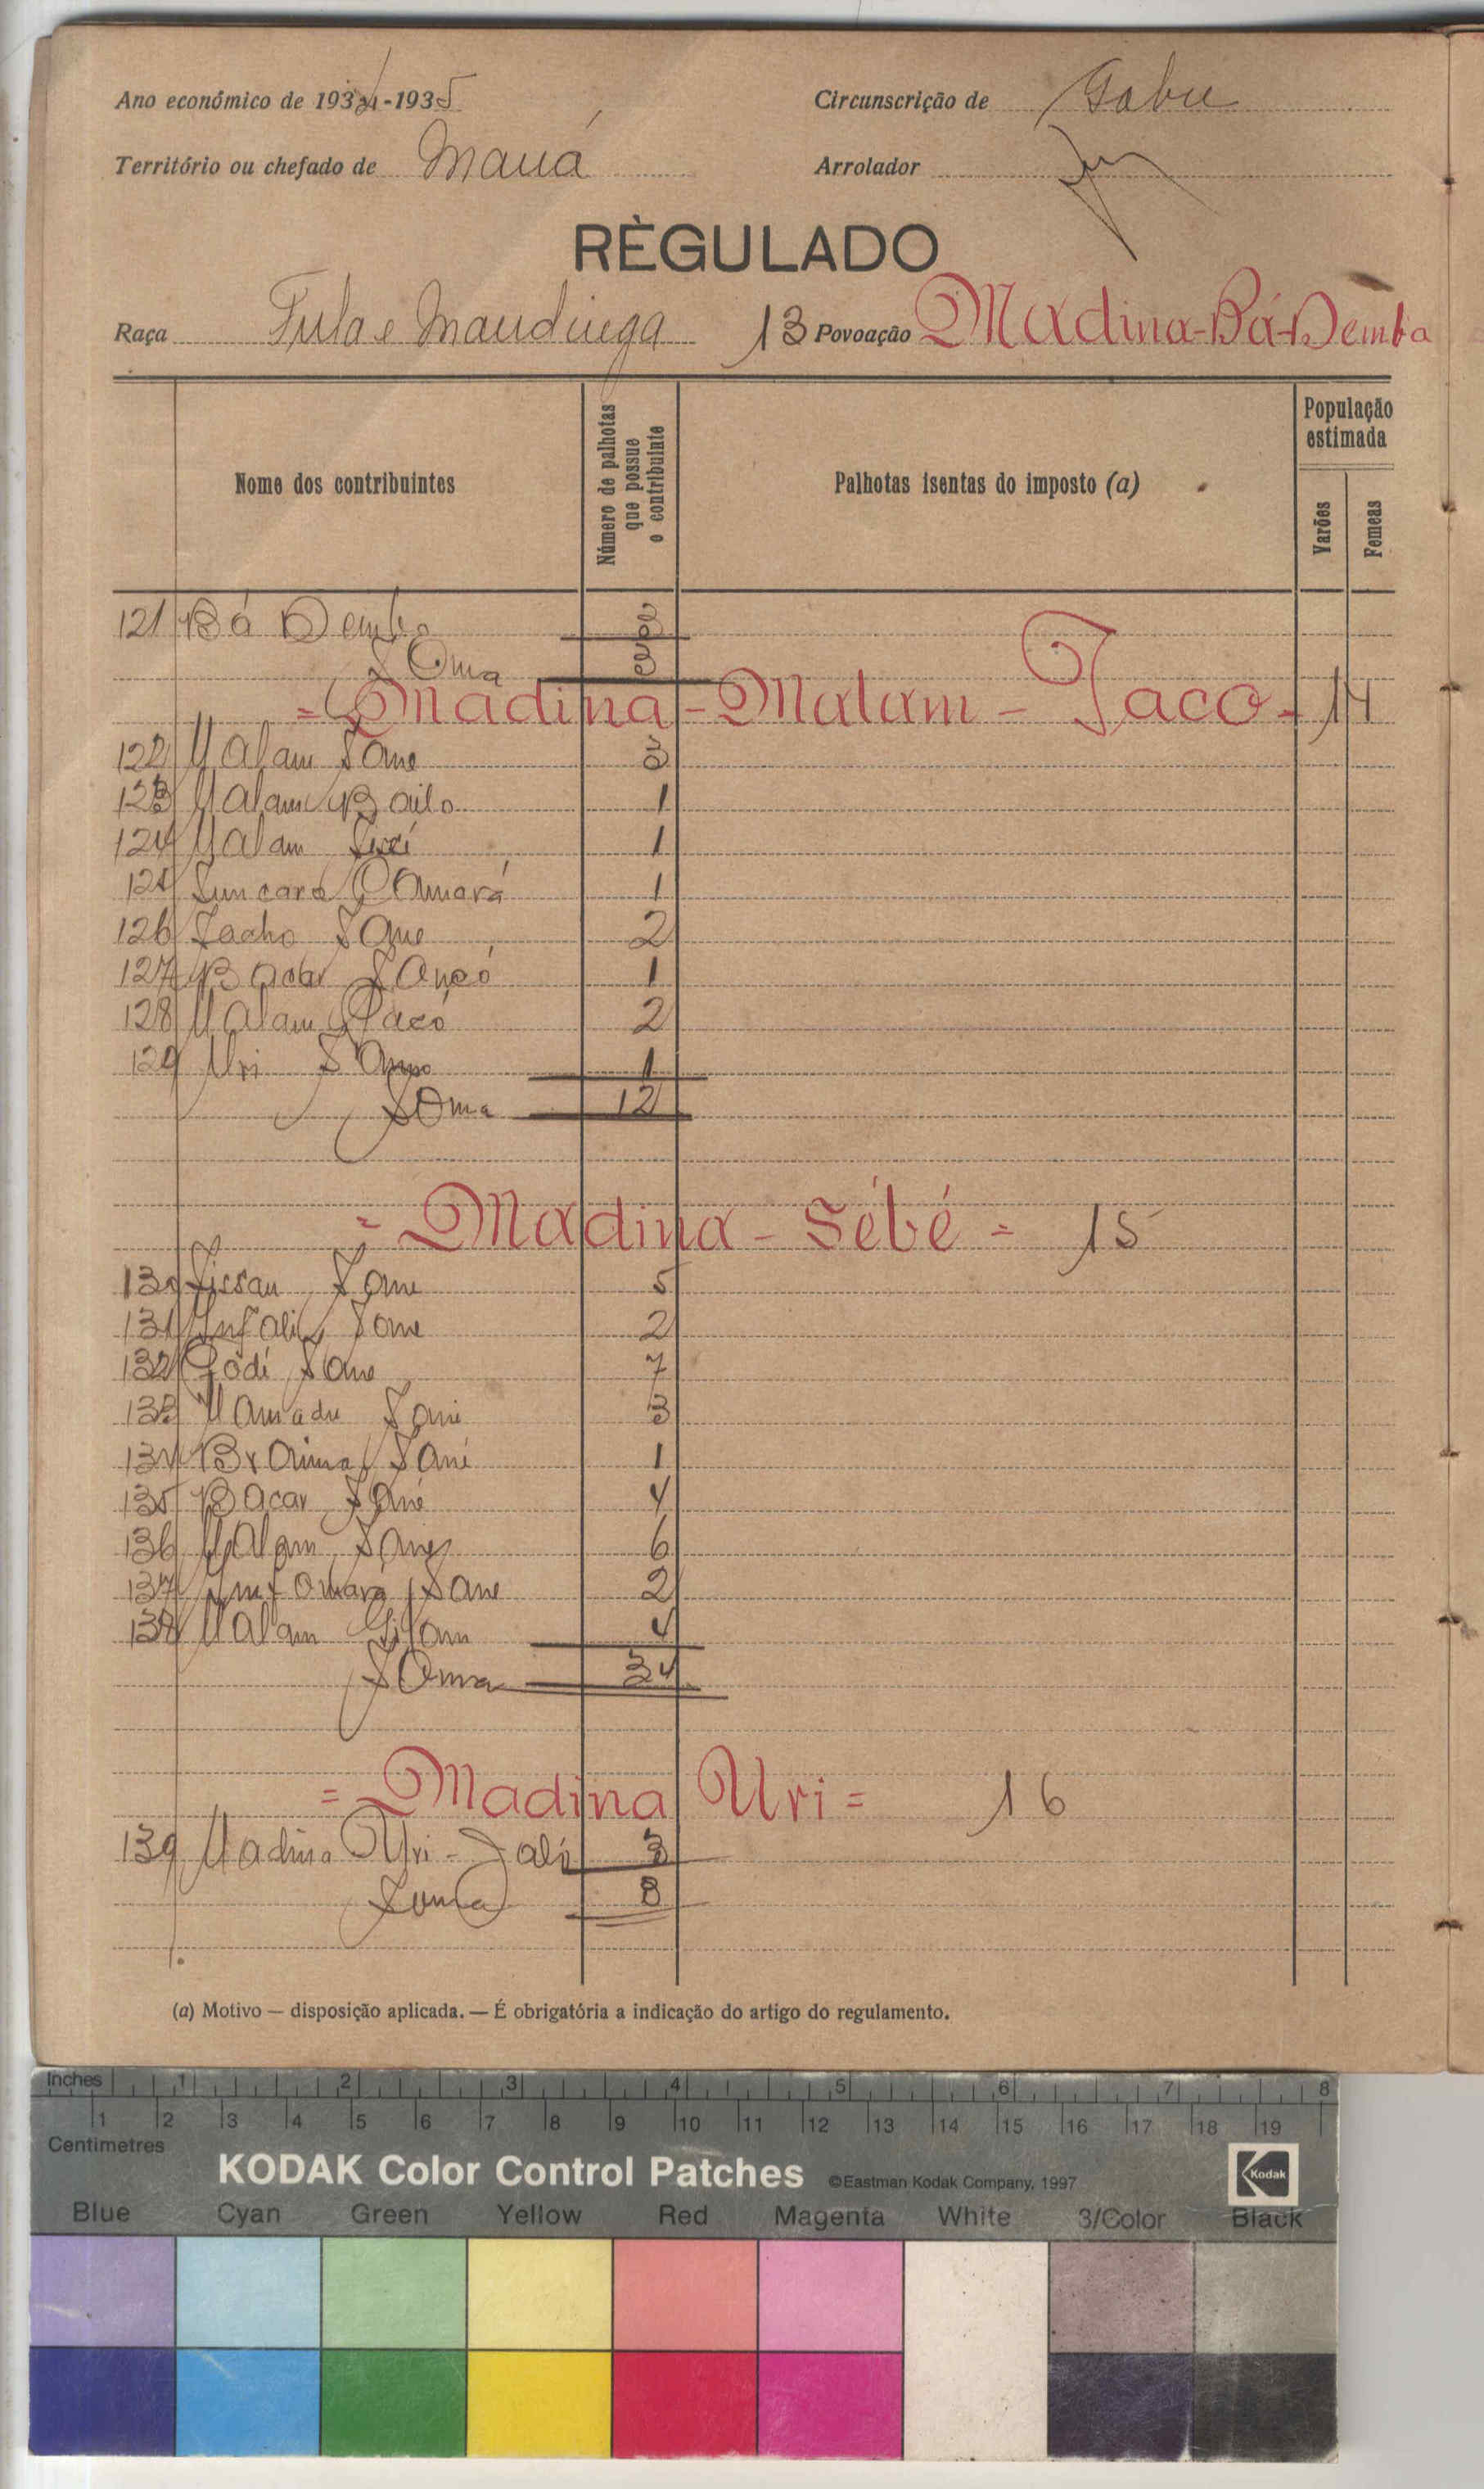 Ano económico de 1934-1935 Circunscrição de Gabu
Território ou chefado de Mauá Arrolador
RÈGULADO
Raça Fula e Mandinga 13 Povoação Madina-Bá-Demba
Nome dos contribuintes
Número de palhotas que possue o contribuinte
Palhotas isentas do imposto (a)
População estimada
Varões
Femeas
121 Bá Demba
Soma
= Madina - Malam - Jaco - 14
122 Malam Sane
123 Malam Bailo 1
124 Malam 1
125 Suncaro Camará 1
126 Sacho Sane 2
127 Bacar 1
128 Malam 2
129 Uri 1
Soma 12
= Madina - Sébé = 15
130 Sissau Sane 5
131 Sane 2
132 Godi Sane 7
133 Mamadu Sané 3
134 Braima Sané 1
135 Bacar Sané 4
136 Malam Sane 6
137 Sane 2
138 Malam 4
Soma 34
= Madina Uri = 16
139 Madina Uri - Jaló 3
Soma 3
(a) Motivo — disposição aplicada. — É obrigatória a indicação do artigo do regulamento.
Inches 1 2 3 4 5 6 7 8
1 2 3 4 5 6 7 8 9 10 11 12 13 14 15 16 17 18 19
Centimetres
KODAK Color Control Patches ©Eastman Kodak Company, 1997 Kodak
Blue Cyan Green Yellow Red Magenta White 3/Color Black